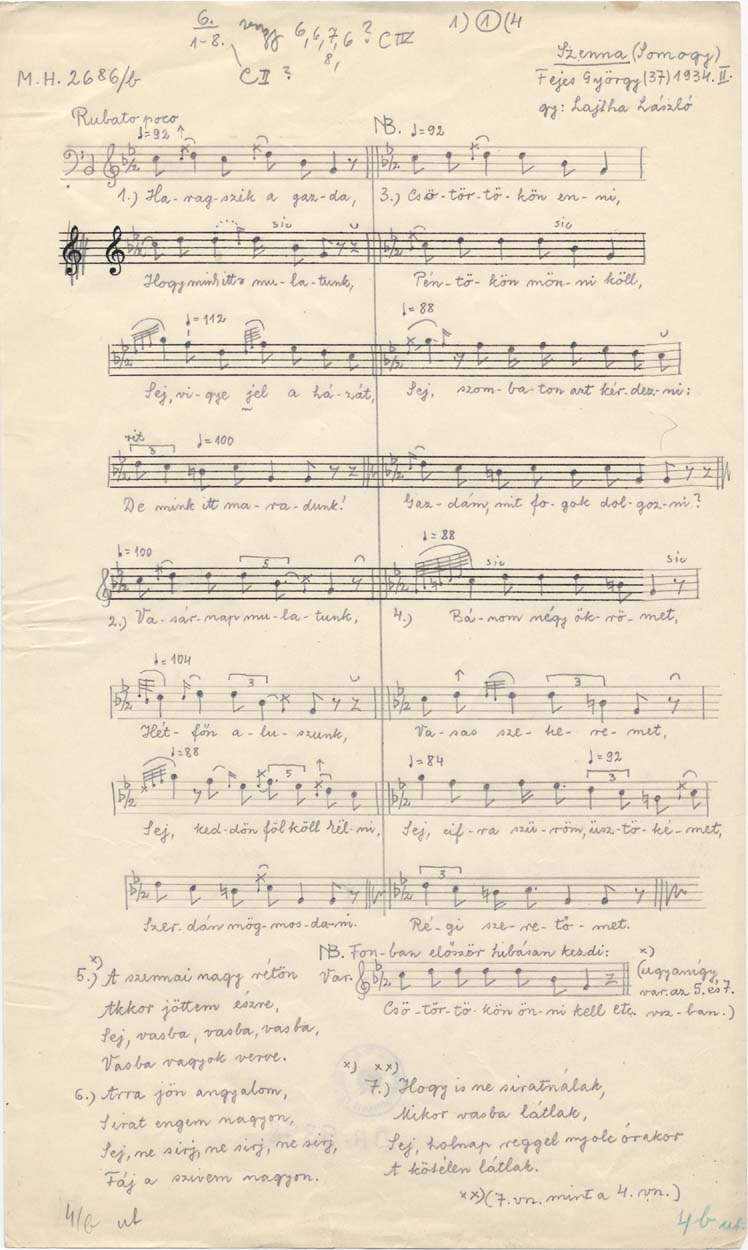 6.
1-8.
6, 6, 7, 6 ? C IV
8,
C II ?
1) ① (4
M.H. 2686/b
Szenna (Somogy)
Fejes György (37) 1934. II.
gy: Lajtha László
Rubato poco
♩=92
NB. ♩=92
1.) Ha-rag-szik a gaz-da, 3.) Csö-tör-tö-kön en-ni,
sic sic
Hogy mink itt mu-la-tunk, Pén-tö-kön mön-ni köll,
♩=112 ♩=88
Sej, vi-gye jel a há-zát, Sej, szom-ba-ton azt kér-dez-ni:
rit 3 ♩=100
De mink itt ma-ra-dunk! Gaz-dám, mit fo-gok dol-goz-ni?
♩=100 5 ♩=88 sic sic
2.) Va-sár-nap mu-la-tunk, 4.) Bá-nom négy ök-rö-met,
♩=104 3 3
Hét-főn a-lu-szunk, Va-sas sze-ke-re-met,
♩=88 5 ♩=84 ♩=92 3
Sej, ked-dön föl köll kel-ni, Sej, cif-ra szü-röm, üsz-tö-ké-met,
3
Szer-dán mög-mos-da-ni. Ré-gi sze-re-tő-met.
NB. Fon-ban először hibásan kezdi:
Var.
Csö-tör-tö-kön ön-ni kell etc.
x)
(ugyanígy
var. az 5. és 7.
vsz-ban.)
x)
5.) A szennai nagy rétön
Akkor jöttem észre,
Sej, vasba, vasba, vasba,
Vasba vagyok verve.
6.) Arra jön angyalom,
Sirat engem nagyon,
Sej, ne sirj, ne sirj, ne sirj,
Fáj a szivem nagyon.
x) xx)
7.) Hogy is ne siratnálak,
Mikor vasba látlak,
Sej, holnap reggel nyolc órakor
A kötélen látlak.
xx) (7. vn. mint a 4. vn.)
4/b ut
4b ut.